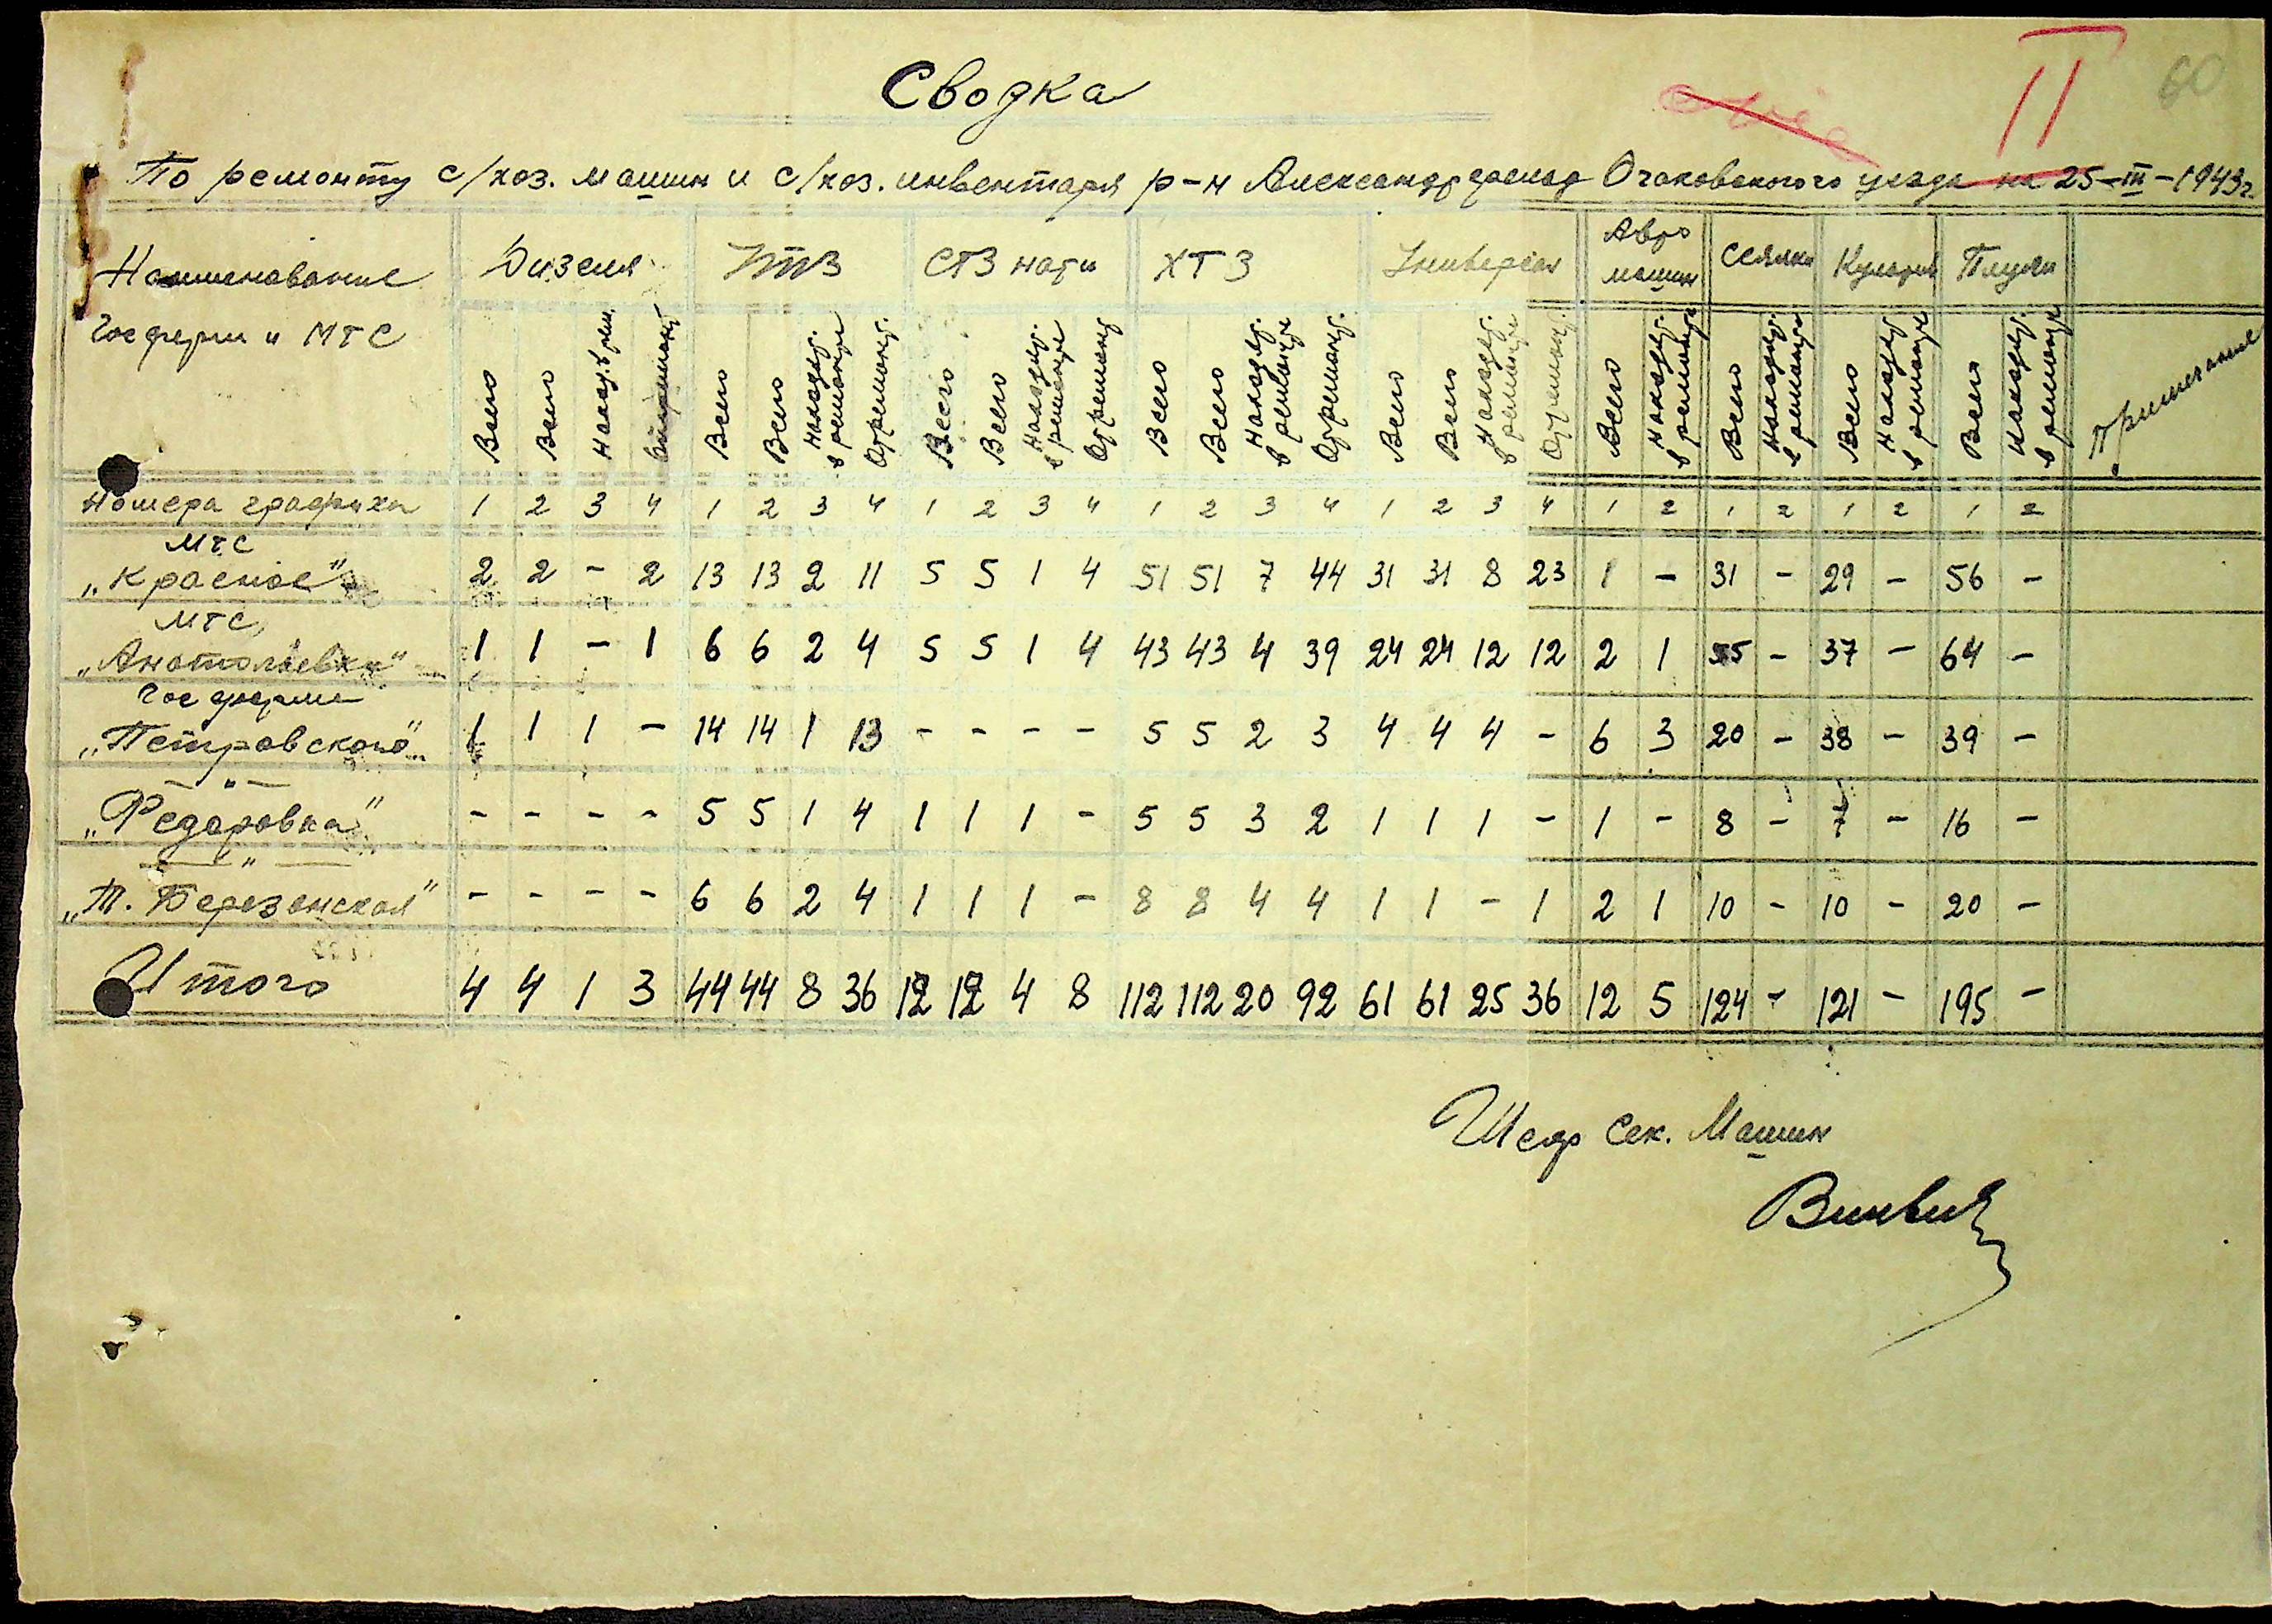 60
II
Сводка
По ремонту с/хоз. машин и с/хоз. инвентаря р-н Александрфельд Очаковского уезда на 25-III-1943г.
Наименование Госферм и МТС | Дизеля | УТЗ | СТЗ нати | ХТЗ | Универсал | Авто машин | Сеялки | Культив | Плуги | Примечание
Всего Всего Наход. в рем. Отремонт | Всего Всего Находят. в ремонте Отремонт. | Всего Всего Находят. в ремонте Отремонт | Всего Всего Находят. в ремонте Отремонт. | Всего Всего Находят. в ремонте Отремонт. | Всего Находят. в ремонте | Всего Находят. в ремонте | Всего Находят в ремонте | Всего Находят. в ремонте
Номера графики 1 2 3 4 1 2 3 4 1 2 3 4 1 2 3 4 1 2 3 4 1 2 1 2 1 2 1 2
МТС
„Красное" 2 2 - 2 13 13 2 11 5 5 1 4 51 51 7 44 31 31 8 23 1 - 31 - 29 - 56 -
МТС
„Анатольевка" 1 1 - 1 6 6 2 4 5 5 1 4 43 43 4 39 24 24 12 12 2 1 55 - 37 - 64 -
Госферма
„Петровского" 1 1 1 - 14 14 1 13 - - - - 5 5 2 3 4 4 4 - 6 3 20 - 38 - 39 -
— " —
„Федаровка" - - - - 5 5 1 4 1 1 1 - 5 5 3 2 1 1 1 - 1 - 8 - 7 - 16 -
— " —
„Т. Березанская" - - - - 6 6 2 4 1 1 1 - 8 8 4 4 1 1 - 1 2 1 10 - 10 - 20 -
Итого 4 4 1 3 44 44 8 36 12 12 4 8 112 112 20 92 61 61 25 36 12 5 124 - 121 - 195 -
Шеф Сек. Машин